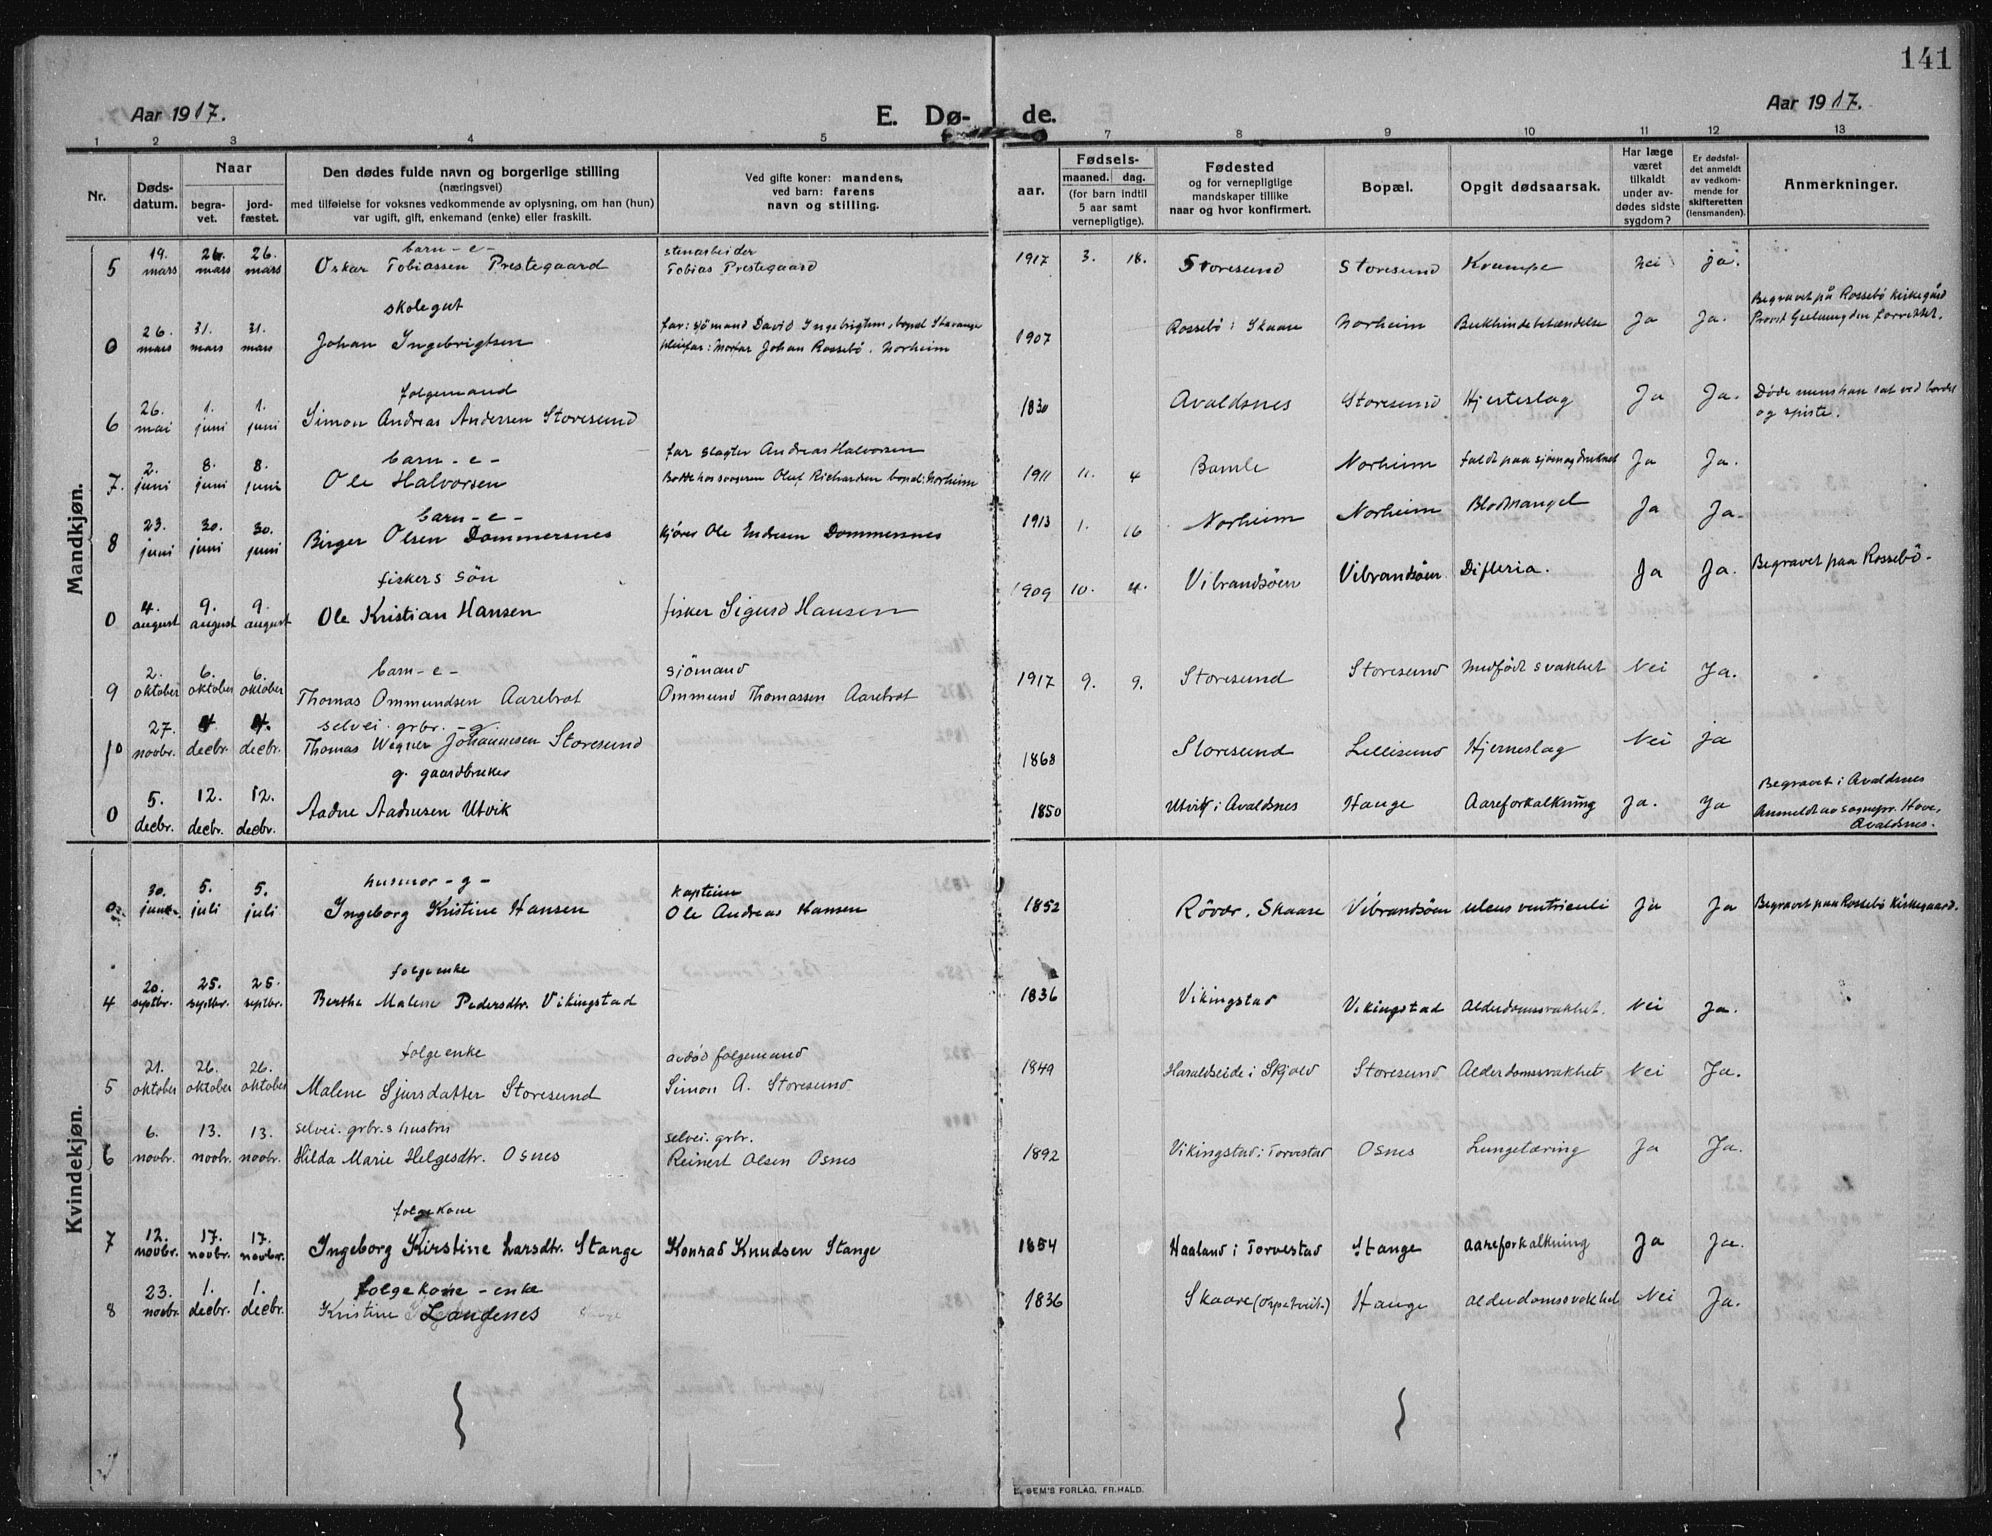 141
Aar 1917. E. Dø- de. Aar 1917.
1 2 3 4 5 7 8 9 10 11 12 13
Nr.
Døds-
datum.
Naar
begra-
vet.
jord-
fæstet.
Den dødes fulde navn og borgerlige stilling
(næringsvei)
med tilføielse for voksnes vedkommende av oplysning, om han (hun)
var ugift, gift, enkemand (enke) eller fraskilt.
Ved gifte koner: mandens,
ved barn: farens
navn og stilling.
aar.
Fødsels-
maaned. dag.
(for barn indtil
5 aar samt
vernepligtige).
Fødested
og for vernepligtige
mandskaper tillike
naar og hvor konfirmert.
Bopæl.
Opgit dødsaarsak.
Har læge
været
tilkaldt
under av-
dødes sidste
sygdom?
Er dødsfal-
det anmeldt
av vedkom-
mende for
skifteretten
(lensmanden).
Anmerkninger.
Mandkjøn.
barn - e - stenarbeider
5 19. mars 26. mars 26. mars Oskar Tobiassen Prestegaard Tobias Prestegaard 1917 3. 18. Storesund Storesund Krampe Nei ja.
skolegut Begravet på Rossebö kirkegård
0 26. mars 31. mars 31. mars Johan Ingebrigtsen far: sjömand David Ingebrigtsen, bopæl Stavanger 1907 Rossebö i Skaare Norheim Bukhindebetændelse Ja Ja.
pleifar: Morfar Johan Rossebö. Norheim
følgemand
6 26. mai 1. juni 1. juni Simon Andreas Andersen Storesund 1830 Avaldsnes Storesund Hjerteslag Ja Ja. Døde mens han sat ved bordet
og spiste.
barn - e - far slagter Andreas Halvorsen
7. 2. juni 8. juni 8. juni Ole Halvorsen Oluf Richardsen bopæl: Norheim 1911 11. 4 Bamle Norheim Faldt paa sjøen og druknet Ja Ja.
barn - e -
8 23. juni 30. juni 30. juni Birger Olsen Dommersnes kjörer Ole Endresen Dommersnes 1913 1. 16 Norheim Norheim Blodmangel Ja Ja.
fiskers sön
0 4. august 9. august 9. august Ole Kristian Hansen fisker Sigurd Hansen 1909 10. 4. Vibrandsöen Vibrandsöen Difteria. Ja Ja. Begravet paa Rossebö.
barn - e - sjömand
9 2. oktober 6. oktober 6. oktober Thomas Ommundsen Aarebrot Ommund Thomassen Aarebrot 1917 9. 9. Storesund Storesund Medfödt svakhet Nei Ja.
selvei. grbr. - g -
10 27. novbr. 4. decbr. 4. decbr. Thomas Wegner Johannesen Storesund 1868 Storesund Lillesund Hjerneslag Nei Ja
g. gaardbruker Begravet i Avaldsnes
0 5. decbr. 12. decbr. 12. decbr. Aadne Aadnesen Utvik 1850 Utvik i Avaldsnes Hauge Aareforkalkning Ja. Ja Anmeldt av sognepr. Hove,
Avaldsnes.
Kvindekjøn.
husmor - g - kaptein
0 30. juni 5. juli 5. juli Ingeborg Kristine Hansen Ole Andreas Hansen 1852 Röver. Skaare Vibrandsöen ulcus ventriculi Ja Ja Begravet paa Rossebö Kirkegaard.
følgeenke
4 20. septbr. 25. septbr. 25. septbr. Bertha Malene Pedersdtr. Vikingstad 1836 Vikingstad Vikingstad Alderdomssvakhet. Nei Ja.
følgeenke avdöd følgemand
5 21. oktober 26. oktober 26. oktober Malene Sjursdatter Storesund Simon A. Storesund 1849 Haraldseide i Skjold Storesund Alderdomssvakhet Nei Ja.
selvei. grbr.s hustru selvei. grbr.
6 6. novbr. 13. novbr. 13. novbr. Hilda Marie Helgesdtr. Osnes Reinert Olsen Osnes 1892 Vikingstad i Torvestad Osnes Lungetæring Ja Ja.
følgekone
7 12. novbr. 17. novbr. 17. novbr. Ingeborg Kirstine Larsdtr. Stange Konrad Knudsen Stange 1854 Haaland i Torvestad Stange Aareforkalkning Ja Ja.
følgekone - enke
8 23. novbr. 1. decbr. 1. decbr. Kristine Landenes 1836 Skaare Hauge Alderdomssvakhet Nei Ja.
E. SEM'S FORLAG, FR.HALD.